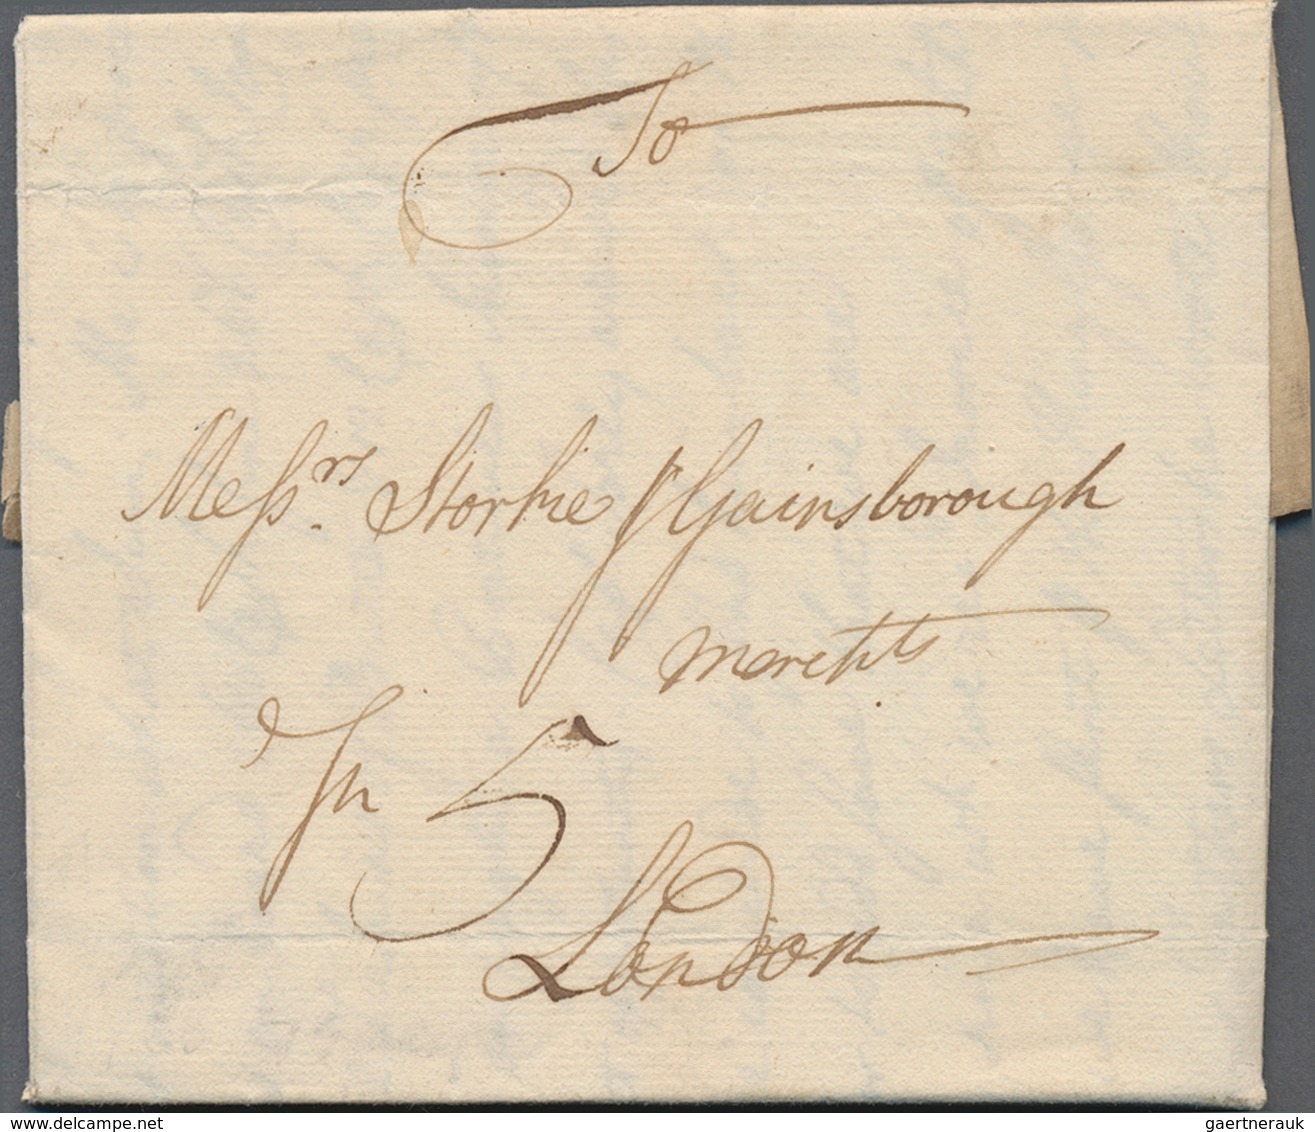 To
Messrs. Storkie & Gainsborough
Merchts
In 5
London
www.delcampe.net
gaertnerauk